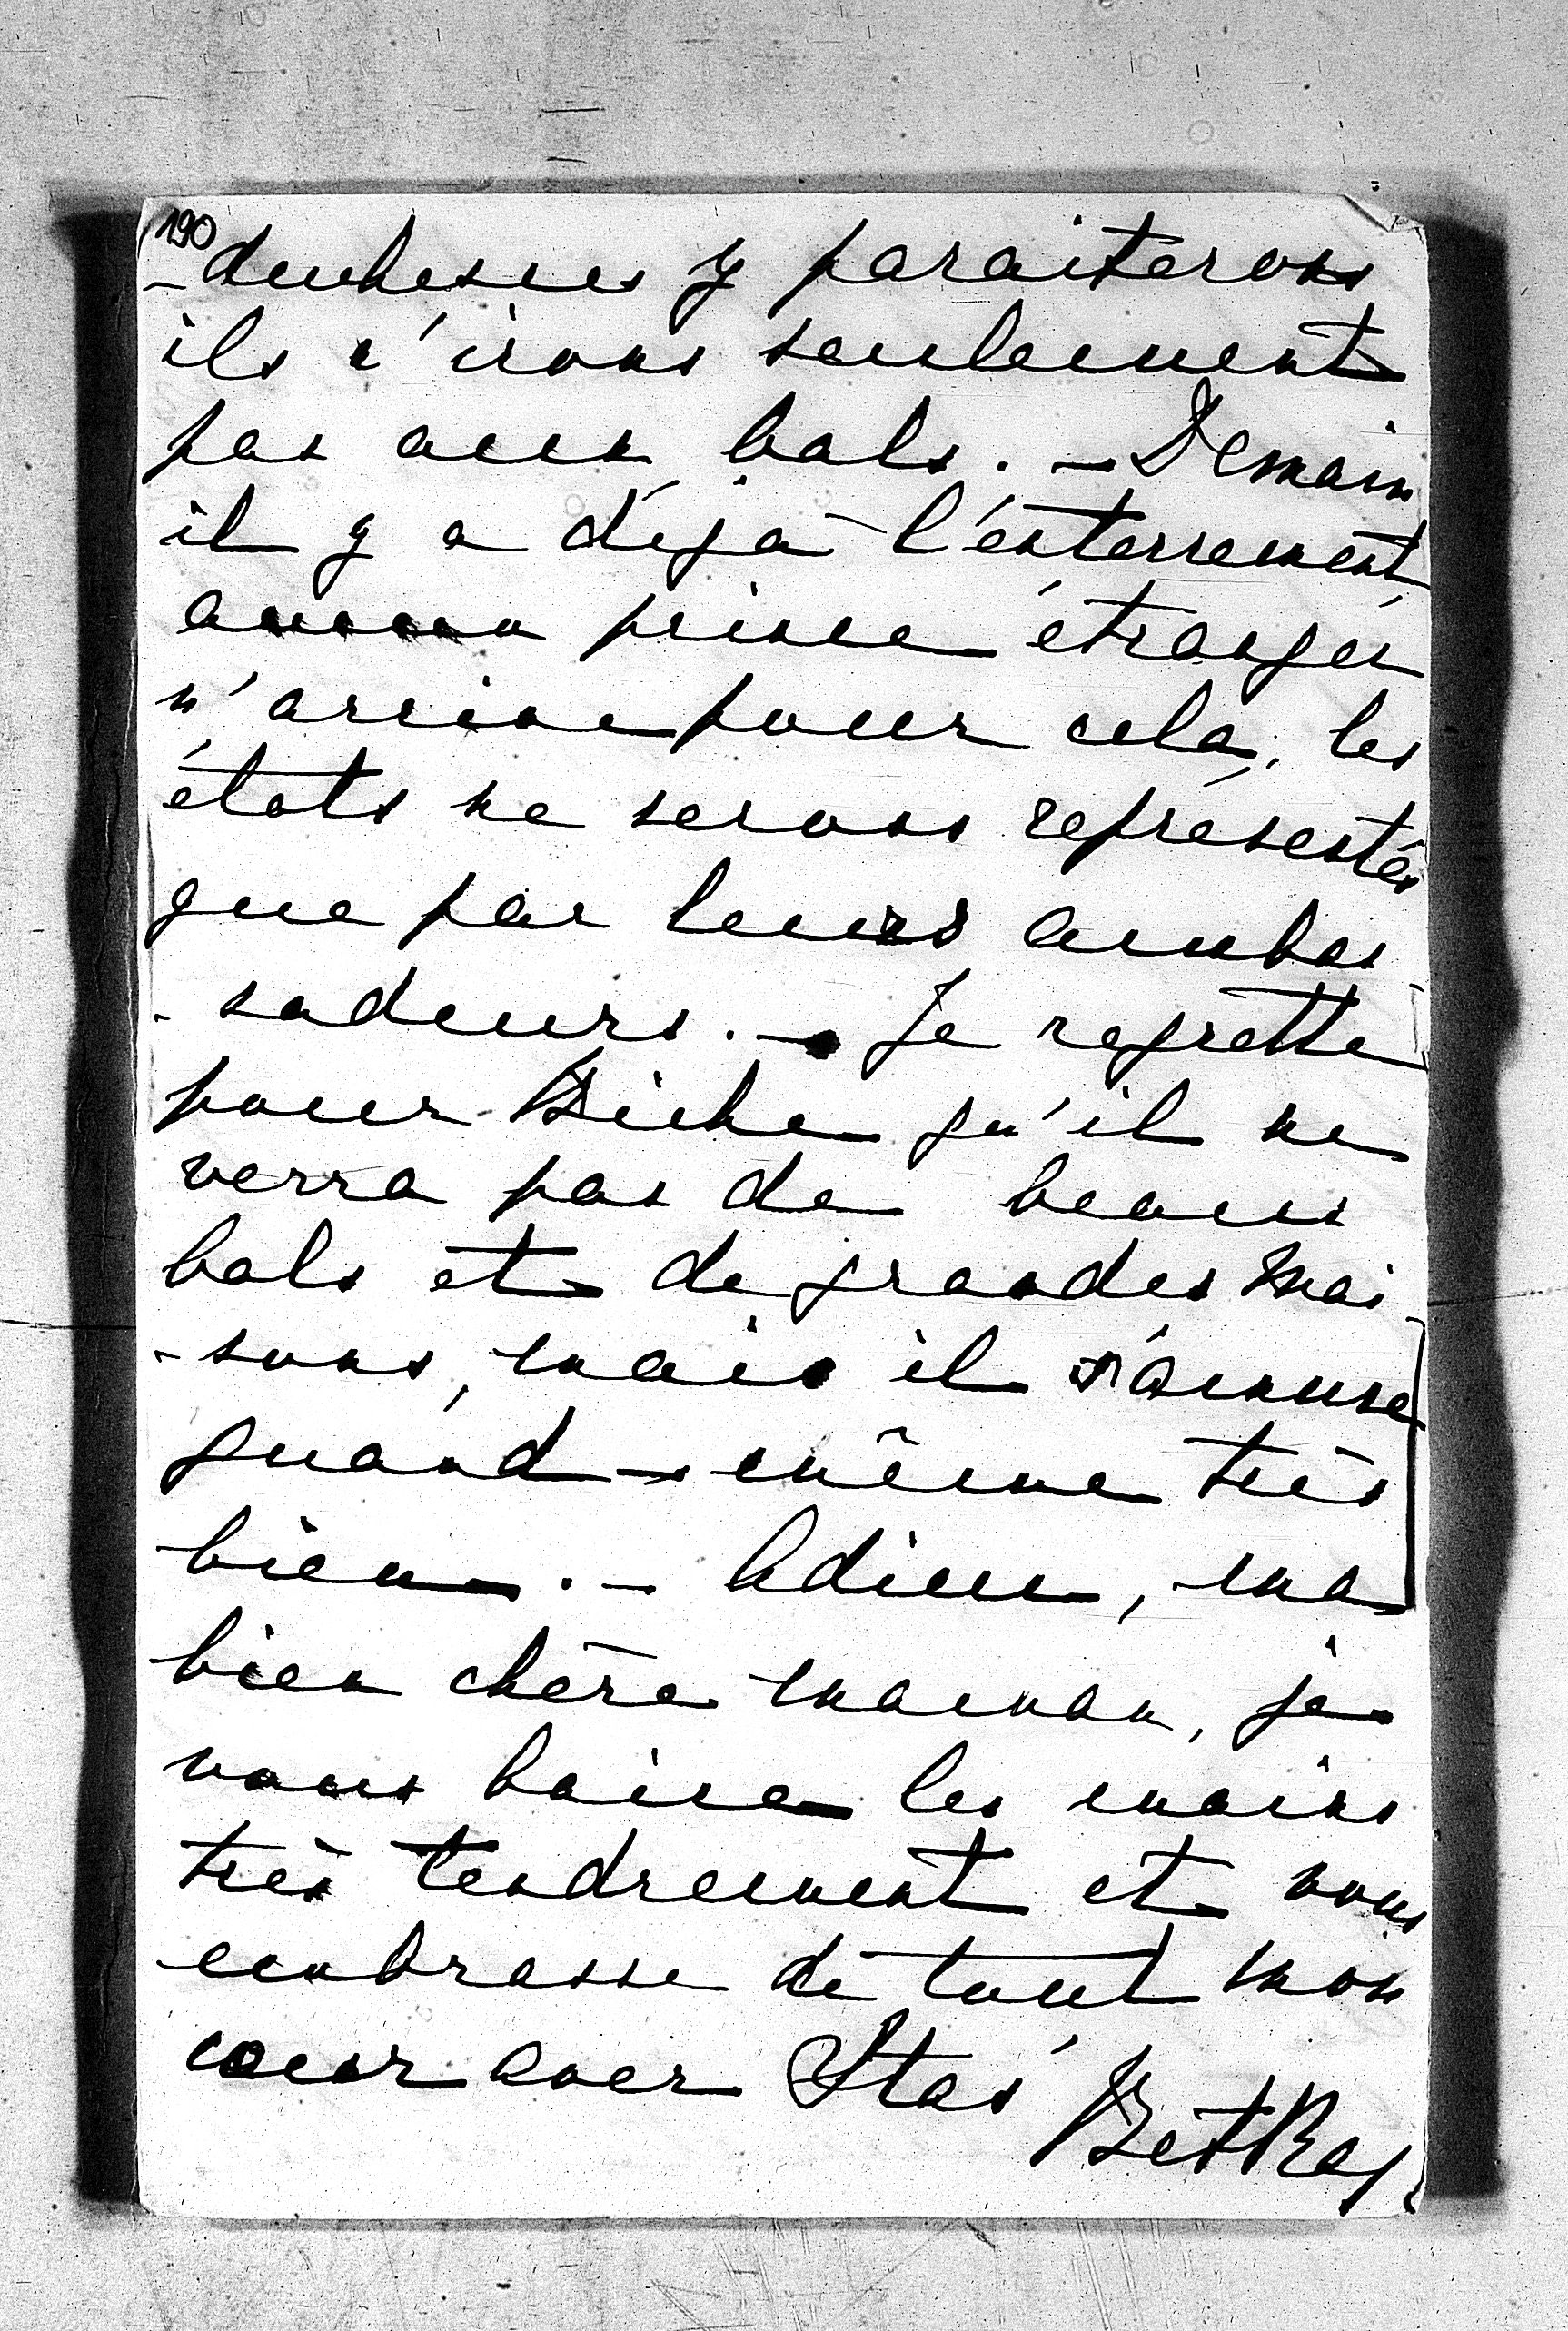 190
-duchesses y paraiterons
ils n'irons seulement
pas aux bals. - Demain
il y a déja l'enterrement
aucun prince étranger
n'arrive pour cela, les
états ne serons représentés
que par leurs ambas
-sadeurs. - Je regrette
pour Biche qu'il ne
verra pas de beaux
bals et de grandes mai
-sons, mais il s'amuse
quand-même très
bien. - Adieu, ma
bien chère maman, je
vous baise les mains
très tendrement et vous
embrasse de tout mon
coeur avec Stas